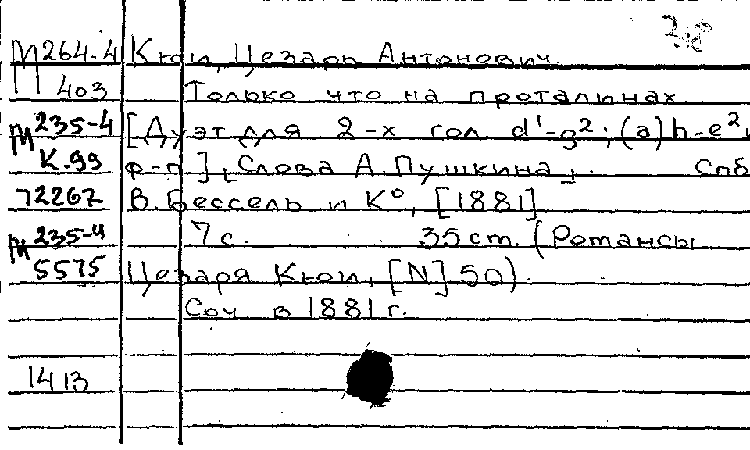 М264-4 Кюи, Цезарь Антонович
403 Только что на проталинах
М235-4 [Дуэт для 2-х гол d¹-g²; (a)h-e²,
К.99 ф-п], „Слова А.Пушкина„. Спб
72267 В.Бессель и К°, [1881]
М235-4 7 с. 35 cm. (Романсы
5575 Цезаря Кюи, [N] 50).
Соч в 1881 г.
1413